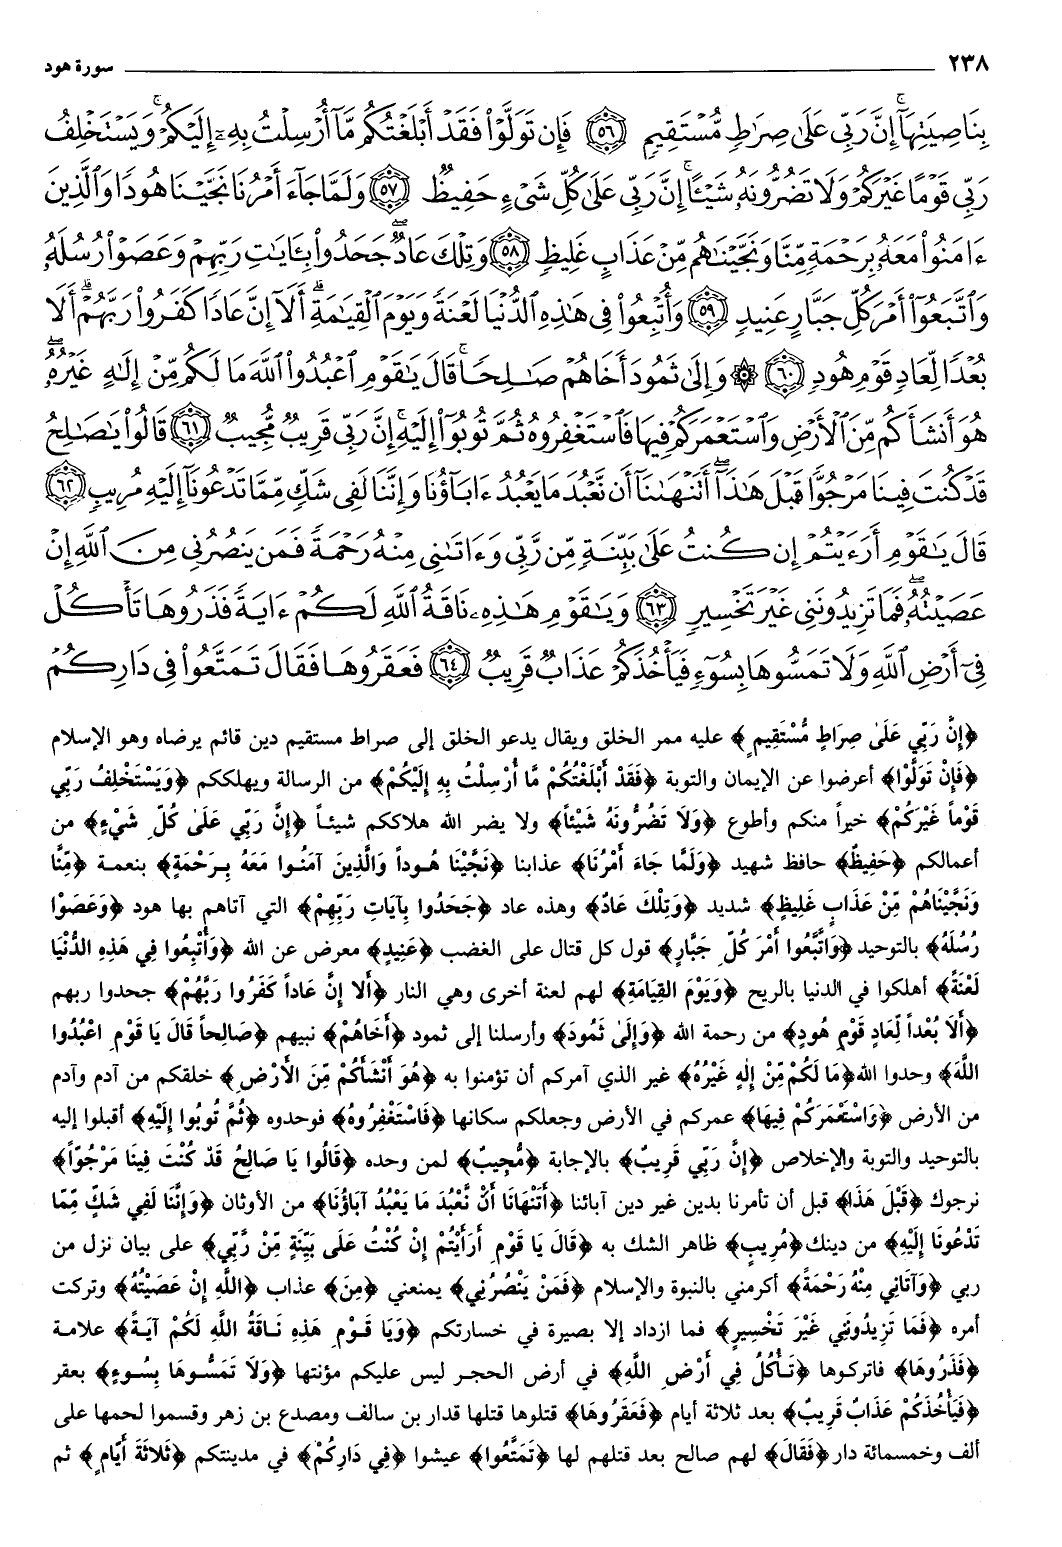 ٢٣٨ سورة هود
بِنَاصِيَتِهَآۚ إِنَّ رَبِّى عَلَىٰ صِرَٰطٍ مُّسْتَقِيمٍ ٥٦ فَإِن تَوَلَّوْا۟ فَقَدْ أَبْلَغْتُكُم مَّآ أُرْسِلْتُ بِهِۦٓ إِلَيْكُمْۚ وَيَسْتَخْلِفُ
رَبِّى قَوْمًا غَيْرَكُمْ وَلَا تَضُرُّونَهُۥ شَيْـًٔاۚ إِنَّ رَبِّى عَلَىٰ كُلِّ شَىْءٍ حَفِيظٌ ٥٧ وَلَمَّا جَآءَ أَمْرُنَا نَجَّيْنَا هُودًا وَٱلَّذِينَ
ءَامَنُوا۟ مَعَهُۥ بِرَحْمَةٍ مِّنَّا وَنَجَّيْنَٰهُم مِّنْ عَذَابٍ غَلِيظٍ ٥٨ وَتِلْكَ عَادٌۖ جَحَدُوا۟ بِـَٔايَٰتِ رَبِّهِمْ وَعَصَوْا۟ رُسُلَهُۥ
وَٱتَّبَعُوٓا۟ أَمْرَ كُلِّ جَبَّارٍ عَنِيدٍ ٥٩ وَأُتْبِعُوا۟ فِى هَٰذِهِ ٱلدُّنْيَا لَعْنَةً وَيَوْمَ ٱلْقِيَٰمَةِۗ أَلَآ إِنَّ عَادًا كَفَرُوا۟ رَبَّهُمْۗ أَلَا
بُعْدًا لِّعَادٍ قَوْمِ هُودٍ ٦٠ ۞ وَإِلَىٰ ثَمُودَ أَخَاهُمْ صَٰلِحًاۚ قَالَ يَٰقَوْمِ ٱعْبُدُوا۟ ٱللَّهَ مَا لَكُم مِّنْ إِلَٰهٍ غَيْرُهُۥۖ
هُوَ أَنشَأَكُم مِّنَ ٱلْأَرْضِ وَٱسْتَعْمَرَكُمْ فِيهَا فَٱسْتَغْفِرُوهُ ثُمَّ تُوبُوٓا۟ إِلَيْهِۚ إِنَّ رَبِّى قَرِيبٌ مُّجِيبٌ ٦١ قَالُوا۟ يَٰصَٰلِحُ
قَدْ كُنتَ فِينَا مَرْجُوًّا قَبْلَ هَٰذَآۖ أَتَنْهَىٰنَآ أَن نَّعْبُدَ مَا يَعْبُدُ ءَابَآؤُنَا وَإِنَّنَا لَفِى شَكٍّ مِّمَّا تَدْعُونَآ إِلَيْهِ مُرِيبٍ ٦٢
قَالَ يَٰقَوْمِ أَرَءَيْتُمْ إِن كُنتُ عَلَىٰ بَيِّنَةٍ مِّن رَّبِّى وَءَاتَىٰنِى مِنْهُ رَحْمَةً فَمَن يَنصُرُنِى مِنَ ٱللَّهِ إِنْ
عَصَيْتُهُۥۖ فَمَا تَزِيدُونَنِى غَيْرَ تَخْسِيرٍ ٦٣ وَيَٰقَوْمِ هَٰذِهِۦ نَاقَةُ ٱللَّهِ لَكُمْ ءَايَةً فَذَرُوهَا تَأْكُلْ
فِىٓ أَرْضِ ٱللَّهِ وَلَا تَمَسُّوهَا بِسُوٓءٍ فَيَأْخُذَكُمْ عَذَابٌ قَرِيبٌ ٦٤ فَعَقَرُوهَا فَقَالَ تَمَتَّعُوا۟ فِى دَارِكُمْ
﴿إِنَّ رَبِّي عَلَىٰ صِرَاطٍ مُّسْتَقِيمٍ﴾ عليه ممر الخلق ويقال يدعو الخلق إلى صراط مستقيم دين قائم يرضاه وهو الإسلام
﴿فَإِنْ تَوَلَّوْا﴾ أعرضوا عن الإيمان والتوبة ﴿فَقَدْ أَبْلَغْتُكُمْ مَّا أُرْسِلْتُ بِهِ إِلَيْكُمْ﴾ من الرسالة ويهلككم ﴿وَيَسْتَخْلِفُ رَبِّي
قَوْماً غَيْرَكُمْ﴾ خيراً منكم وأطوع ﴿وَلَا تَضُرُّونَهُ شَيْئاً﴾ ولا يضر الله هلاككم شيئاً ﴿إِنَّ رَبِّي عَلَىٰ كُلِّ شَيْءٍ﴾ من
أعمالكم ﴿حَفِيظٌ﴾ حافظ شهيد ﴿وَلَمَّا جَاءَ أَمْرُنَا﴾ عذابنا ﴿نَجَّيْنَا هُوداً وَالَّذِينَ آمَنُوا مَعَهُ بِرَحْمَةٍ﴾ بنعمة ﴿مِّنَّا
وَنَجَّيْنَاهُمْ مِّنْ عَذَابٍ غَلِيظٍ﴾ شديد ﴿وَتِلْكَ عَادٌ﴾ وهذه عاد ﴿جَحَدُوا بِآيَاتِ رَبِّهِمْ﴾ التي آتاهم بها هود ﴿وَعَصَوْا
رُسُلَهُ﴾ بالتوحيد ﴿وَاتَّبَعُوا أَمْرَ كُلِّ جَبَّارٍ﴾ قول كل قتال على الغضب ﴿عَنِيدٍ﴾ معرض عن الله ﴿وَأُتْبِعُوا فِي هَذِهِ الدُّنْيَا
لَعْنَةً﴾ أهلكوا في الدنيا بالريح ﴿وَيَوْمَ القِيَامَةِ﴾ لهم لعنة أخرى وهي النار ﴿أَلا إِنَّ عَاداً كَفَرُوا رَبَّهُمْ﴾ جحدوا ربهم
﴿أَلَا بُعْداً لِّعَادٍ قَوْمِ هُودٍ﴾ من رحمة الله ﴿وَإِلَىٰ ثَمُودَ﴾ وأرسلنا إلى ثمود ﴿أَخَاهُمْ﴾ نبيهم ﴿صَالِحاً قَالَ يَا قَوْمِ اعْبُدُوا
اللَّهَ﴾ وحدوا الله ﴿مَا لَكُمْ مِّنْ إِلٰهٍ غَيْرُهُ﴾ غير الذي آمركم أن تؤمنوا به ﴿هُوَ أَنْشَأَكُمْ مِّنَ الأَرْضِ﴾ خلقكم من آدم وآدم
من الأرض ﴿وَاسْتَعْمَرَكُمْ فِيهَا﴾ عمركم في الأرض وجعلكم سكانها ﴿فَاسْتَغْفِرُوهُ﴾ فوحدوه ﴿ثُمَّ تُوبُوا إِلَيْهِ﴾ أقبلوا إليه
بالتوحيد والتوبة والإخلاص ﴿إِنَّ رَبِّي قَرِيبٌ﴾ بالإجابة ﴿مُّجِيبٌ﴾ لمن وحده ﴿قَالُوا يَا صَالِحُ قَدْ كُنْتَ فِينَا مَرْجُوّاً﴾
نرجوك ﴿قَبْلَ هَذَا﴾ قبل أن تأمرنا بدين غير دين آبائنا ﴿أَتَنْهَانَا أَنْ نَّعْبُدَ مَا يَعْبُدُ آبَاؤُنَا﴾ من الأوثان ﴿وَإِنَّنَا لَفِي شَكٍّ مِّمَّا
تَدْعُونَا إِلَيْهِ﴾ من دينك ﴿مُرِيبٍ﴾ ظاهر الشك به ﴿قَالَ يَا قَوْمِ أَرَأَيْتُمْ إِنْ كُنْتُ عَلَى بَيِّنَةٍ مِّنْ رَّبِّي﴾ على بيان نزل من
ربي ﴿وَآتَانِي مِنْهُ رَحْمَةً﴾ أكرمني بالنبوة والإسلام ﴿فَمَنْ يَنْصُرُنِي﴾ يمنعني ﴿مِنَ﴾ عذاب ﴿اللَّهِ إِنْ عَصَيْتُهُ﴾ وتركت
أمره ﴿فَمَا تَزِيدُونَنِي غَيْرَ تَخْسِيرٍ﴾ فما ازداد إلا بصيرة في خسارتكم ﴿وَيَا قَوْمِ هَذِهِ نَاقَةُ اللَّهِ لَكُمْ آيَةً﴾ علامة
﴿فَذَرُوهَا﴾ فاتركوها ﴿تَأْكُلُ فِي أَرْضِ اللَّهِ﴾ في أرض الحجر ليس عليكم مؤنتها ﴿وَلَا تَمَسُّوهَا بِسُوءٍ﴾ بعقر
﴿فَيَأْخُذَكُمْ عَذَابٌ قَرِيبٌ﴾ بعد ثلاثة أيام ﴿فَعَقَرُوهَا﴾ قتلوها قتلها قدار بن سالف ومصدع بن زهر وقسموا لحمها على
ألف وخمسمائة دار ﴿فَقَالَ﴾ لهم صالح بعد قتلهم لها ﴿تَمَتَّعُوا﴾ عيشوا ﴿فِي دَارِكُمْ﴾ في مدينتكم ﴿ثَلَاثَةَ أَيَّامٍ﴾ ثم